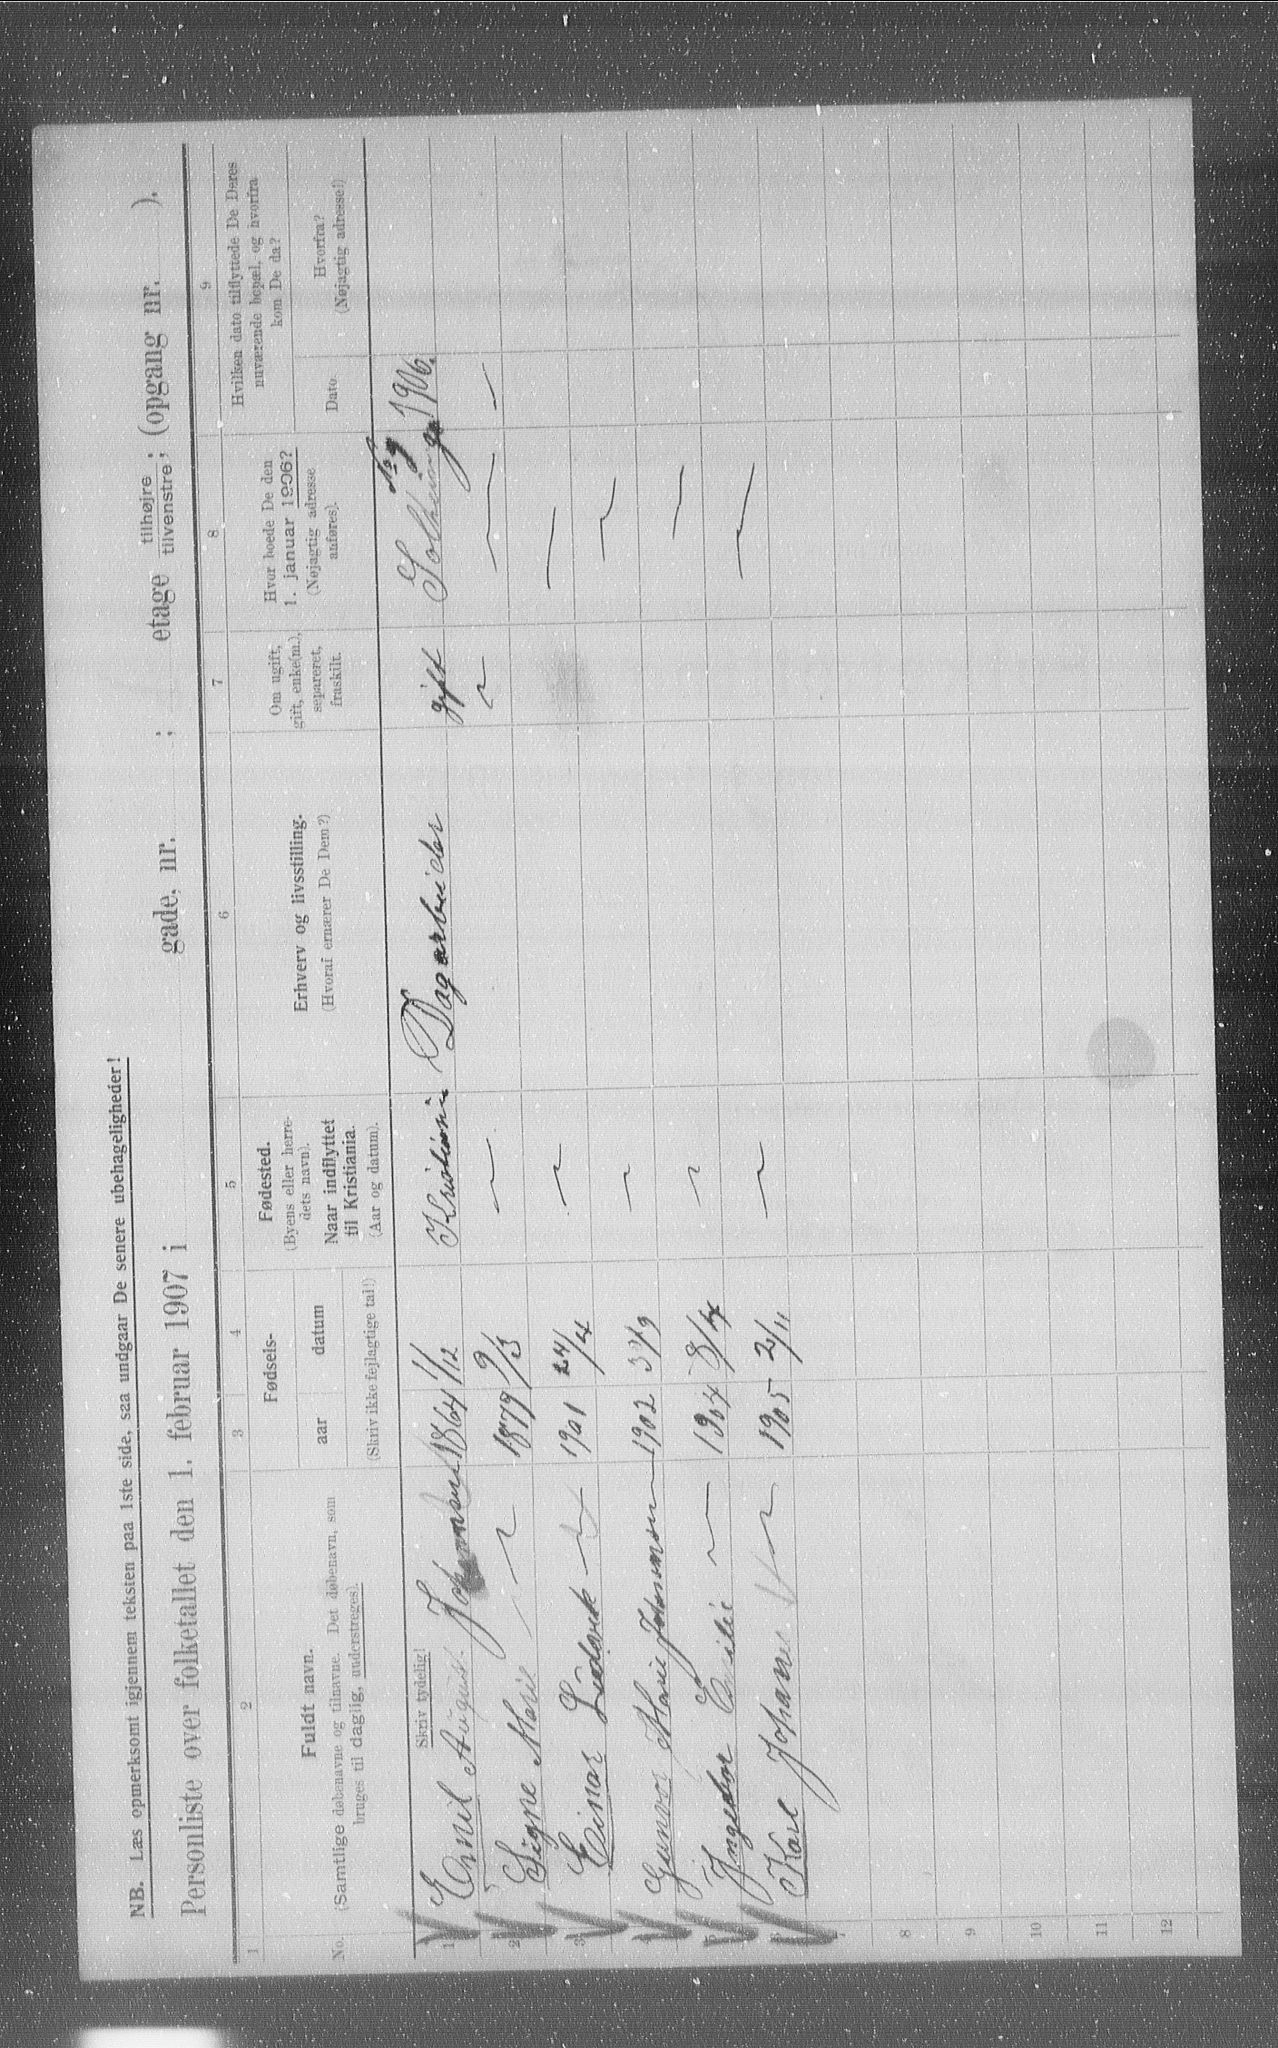 NB. Læs opmerksomt igjennem teksten paa 1ste side, saa undgaar De senere ubehageligheder!
Personliste over folketallet den 1. februar 1907 i gade, nr. ; etage tilhøjre tilvenstre; (opgang nr. ).
1 2 3 4 5 6 7 8 9
No.
Fuldt navn.
(Samtlige døbenavne og tilnavne. Det døbenavn, som
bruges til daglig, understreges).
Fødsels-
aar datum
(Skriv ikke fejlagtige tal!)
Fødested.
(Byens eller herre-
dets navn).
Naar indflyttet
til Kristiania.
(Aar og datum).
Erhverv og livsstilling.
(Hvoraf ernærer De Dem?)
Om ugift,
gift, enke(m.),
separeret,
fraskilt.
Hvor boede De den
1. januar 1906?
(Nøjagtig adresse
anføres).
Hvilken dato tilflyttede De Deres
nuværende bopæl, og hvorfra
kom De da?
Dato.
Hvorfra?
(Nøjagtig adresse!)
Skriv tydelig!
1 Emil August Johansen 1864 1/12 Kristiania Dagarbeider gift 1906.
2 Signe Marie — 1879 9/3 — — — —
3 Einar Ludvik — 1901 24/4 — —
4 Gunvor Marie Johansen 1902 3/9 — —
5 Ingebor — 1904 8/4 — —
6 Karl Johannes — 1905 2/11 — —
7
8
9
10
11
12